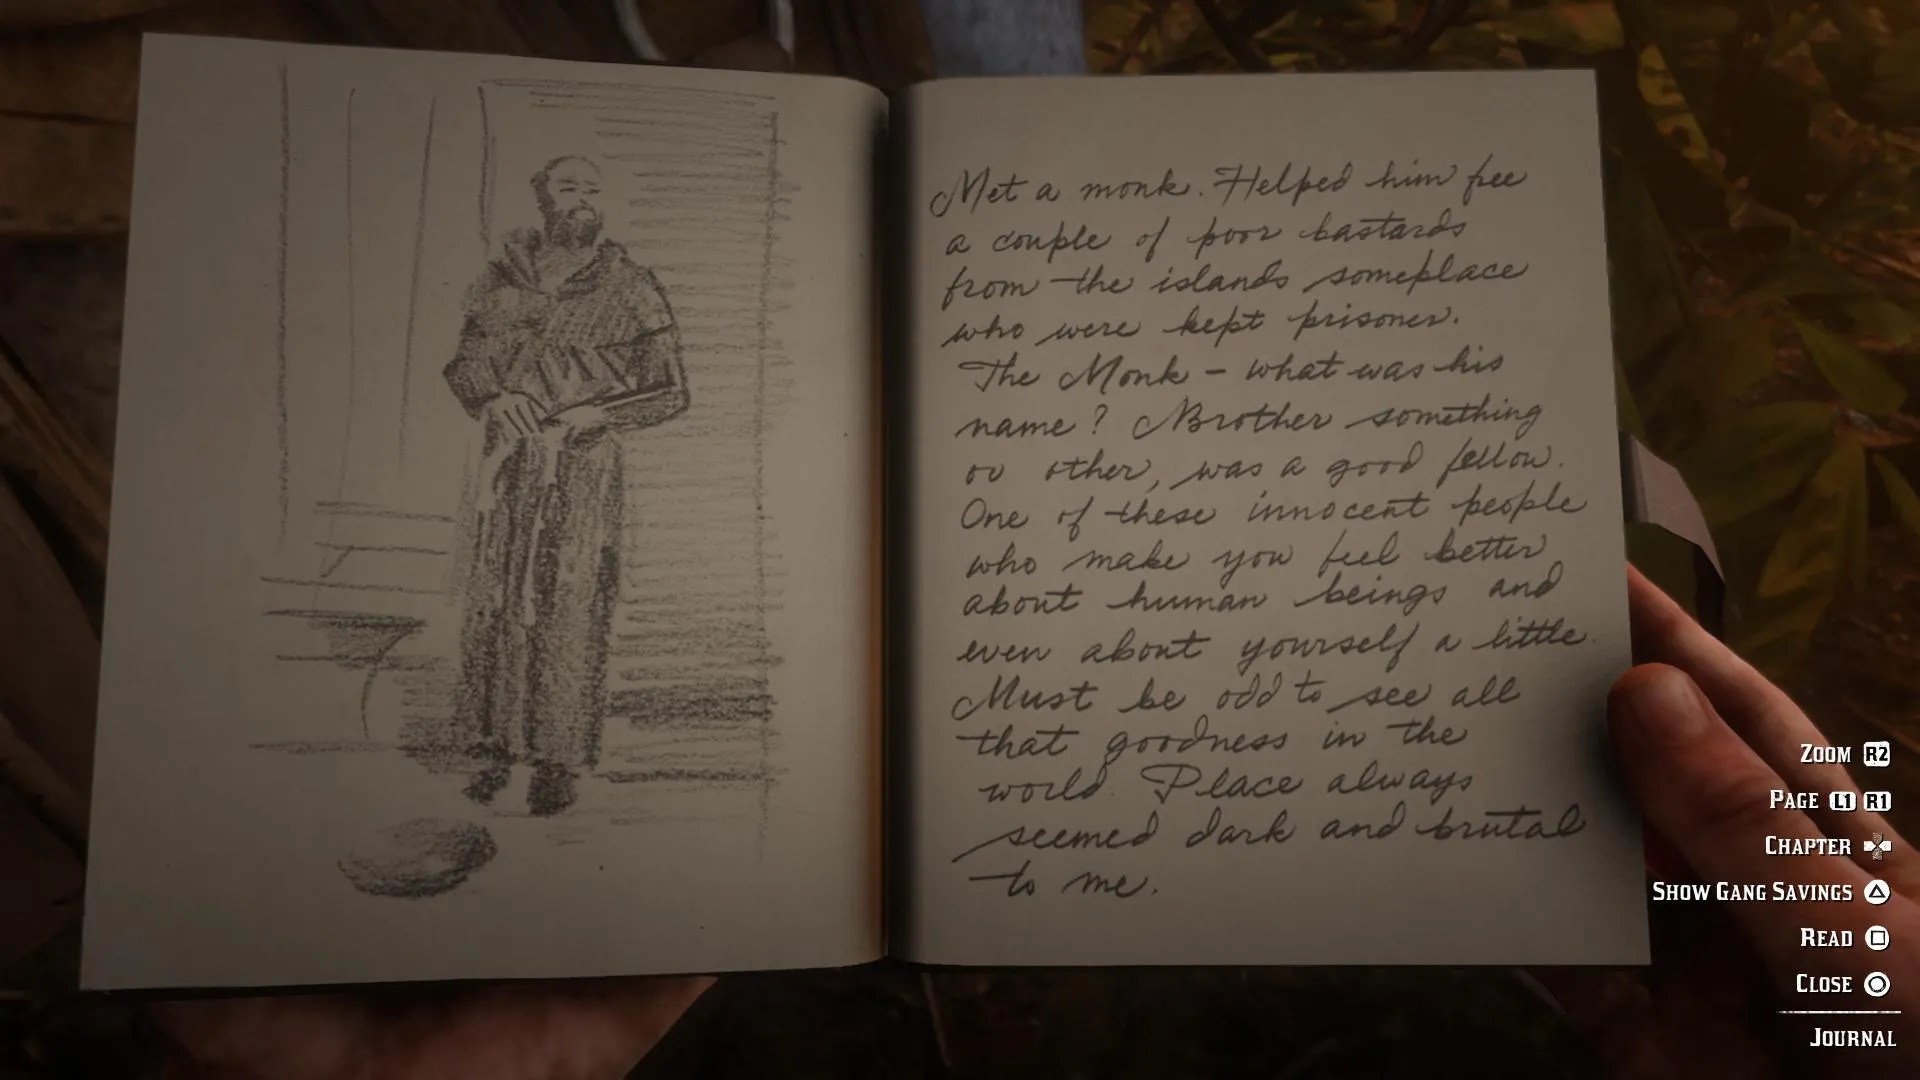 Met a monk. Helped him free
a couple of poor bastards
from the islands someplace
who were kept prisoner.
The Monk – what was his
name? Brother something
or other, was a good fellow.
One of these innocent people
who make you feel better
about human beings and
even about yourself a little.
Must be odd to see all
that goodness in the
world. Place always
seemed dark and brutal
to me.
ZOOM R2
PAGE L1 R1
CHAPTER
SHOW GANG SAVINGS
READ
CLOSE
JOURNAL